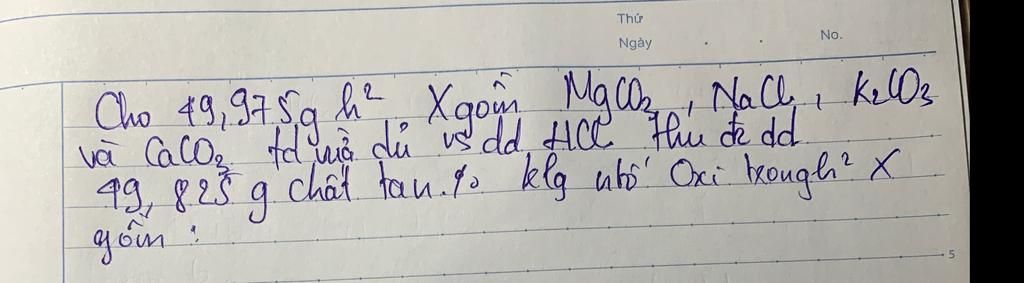 Thứ
Ngày . . No.
Cho 49,975g h² X gồm MgCO₃, NaCl, K₂CO₃
và CaCO₃ td vừa đủ vs dd HCl thu đc dd
49,825 g chất tan. % klg ntố Oxi trong h² X
gồm :
5